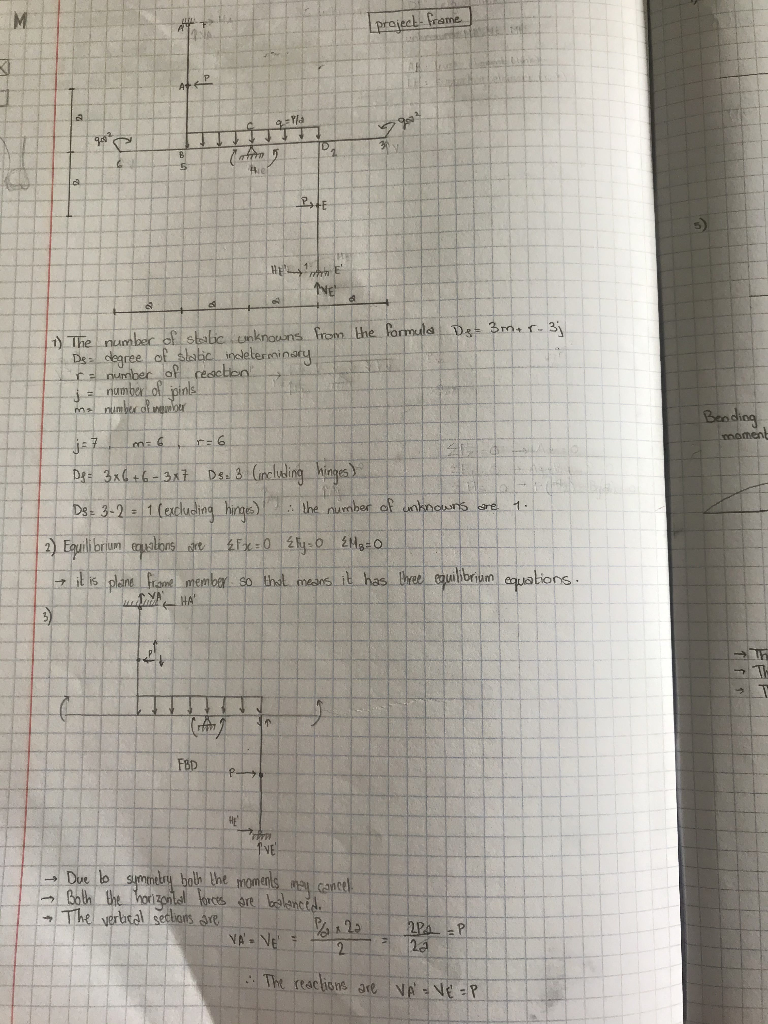 M
project-frame
A
P
a
q=P/a
C
qa²
qa²
B
D
2
3
6
5
4
a
P
E
HE'
1
E'
VE'
a
a
a
a
1) The number of static unknowns from the formula Ds= 3m+r-3j
Ds= degree of static indeterminory
r = number of reaction
j = number of joints
m= number of member
j=7 , m=6 , r=6
Ds= 3x6+6-3x7 Ds=3 (including hinges)
Ds= 3-2 = 1 (excluding hinges) ∴ the number of unknowns are 1.
2) Equilibrium equations are ΣFx=0 ΣFy=0 ΣMB=0
→ it is plane frame member so that means it has three equilibrium equations.
3)
VA'
HA'
P
FBD
P
HE'
VE'
→ Due to symmetry both the moments may cancel
→ Both the horizontal forces are balanced.
→ The vertical sections are
VA' = VE' = P/a x 2a / 2 = 2Pa / 2a = P
∴ The reactions are VA' = VE' = P
5)
Bending
moment
→ Th
→ Th
→ T